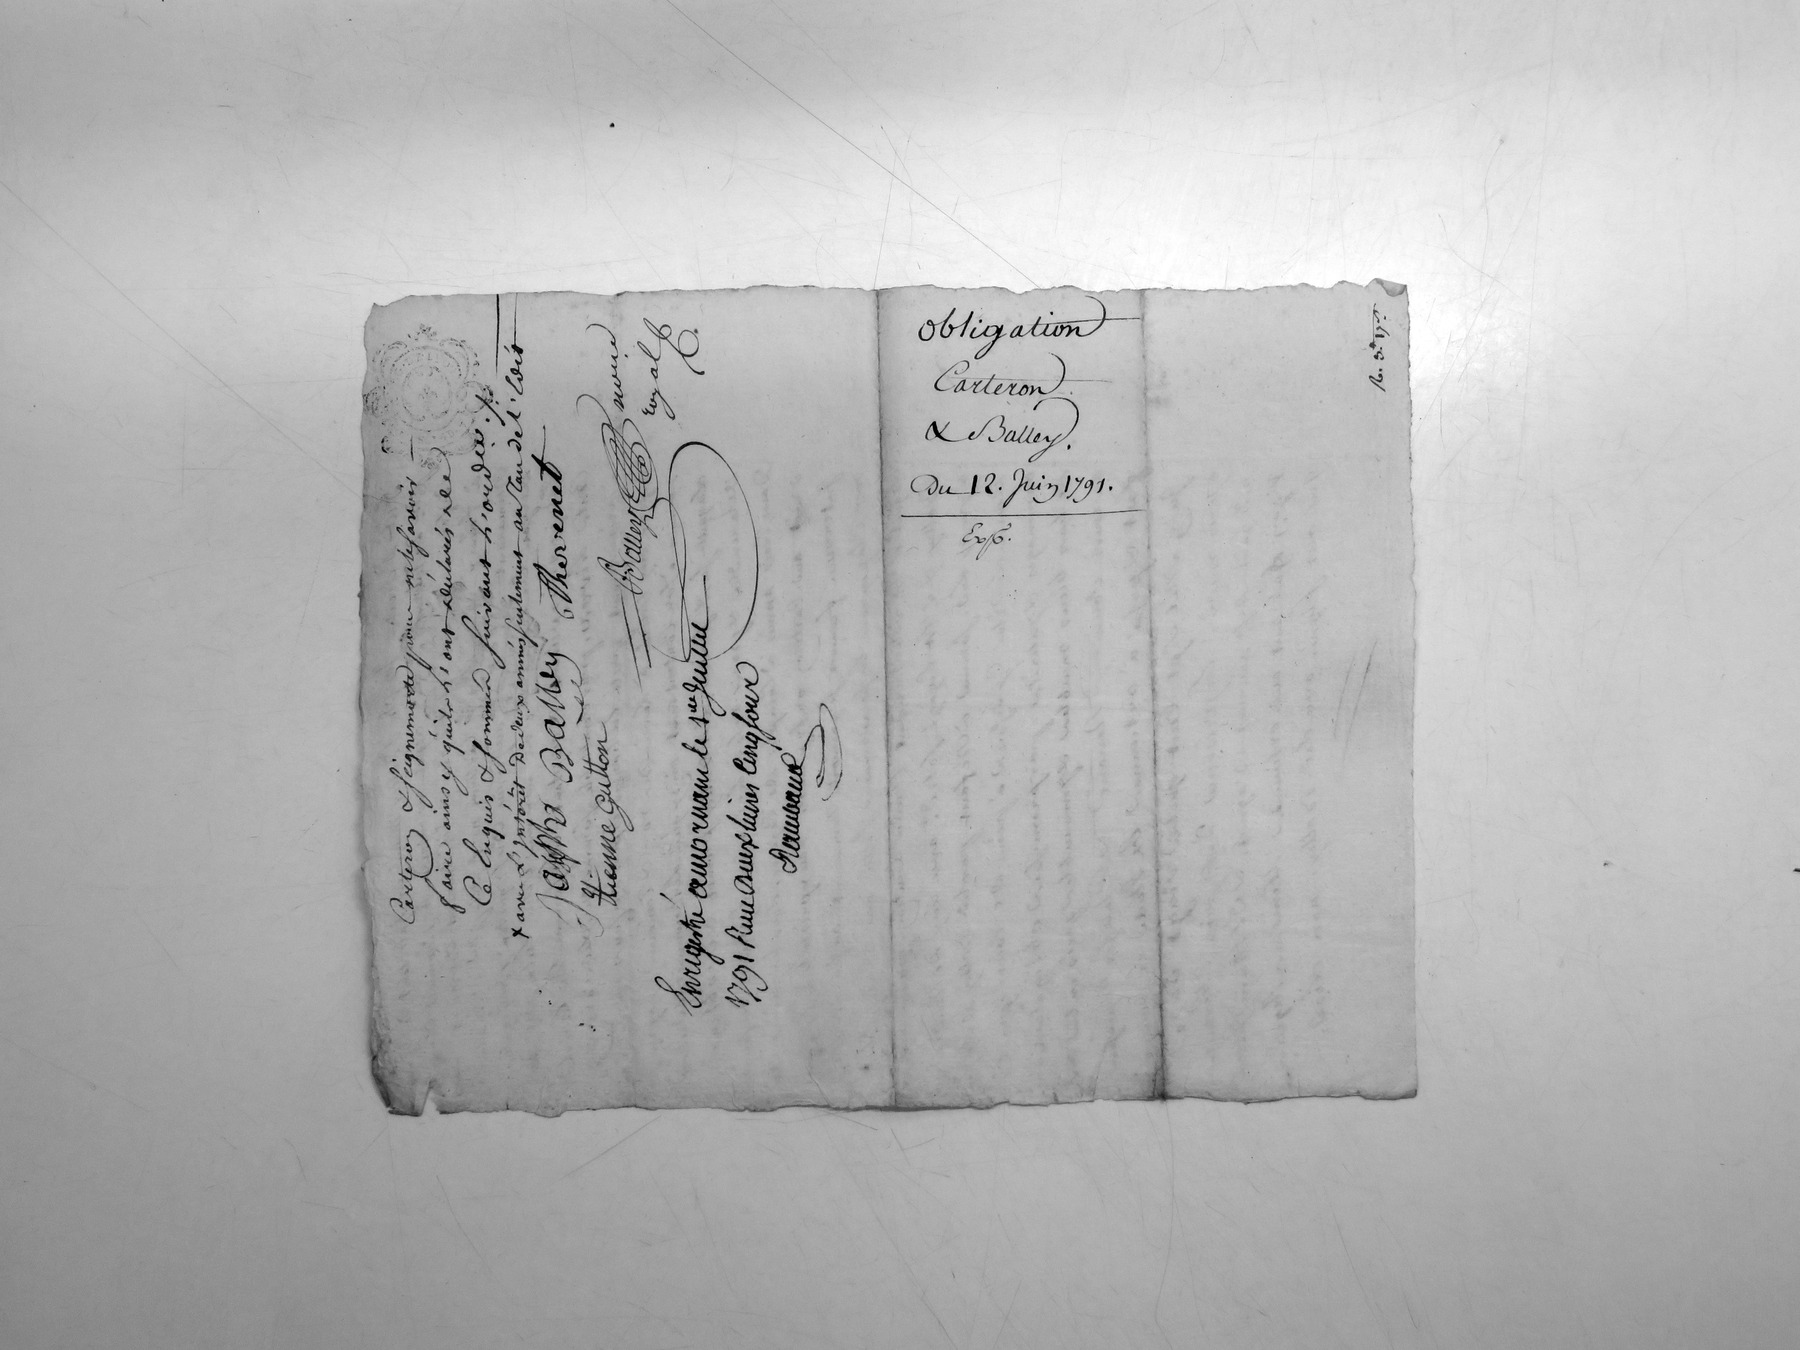 Carteron & Seignemarte pour ne Sçavoir
faire ains y qu'ils l'ont déclarés de
Ce Enquis & Sommés suivant l'ordce. /.
+ avec L'intérêt De deux années seulement au Tau de l'Edit
Joseph Balley Thevenet
Etienne Gutton
Balley noire
royal
Enregistré a amornant le 1er Juillet
1791 Reçu deux livres Cinq sous
Obligation
Carteron
& Balley.
Du 12. Juin 1791.
Exp.